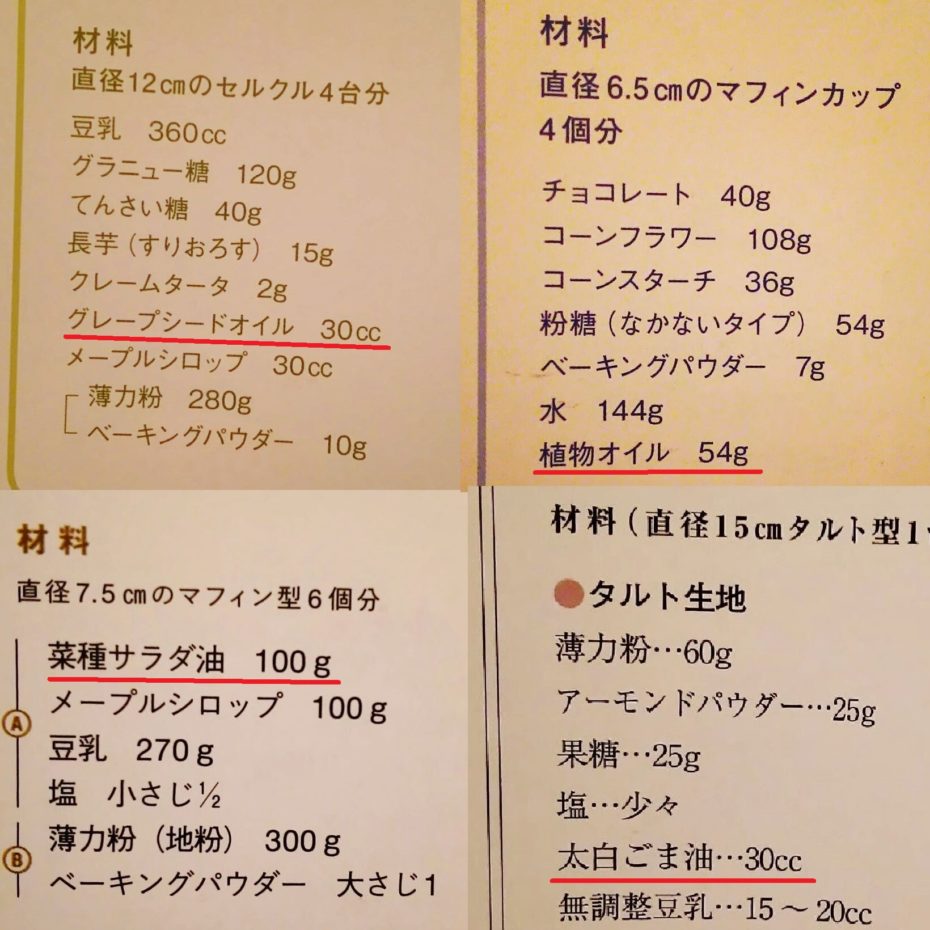 材料
直径12cmのセルクル4台分
豆乳 360cc
グラニュー糖 120g
てんさい糖 40g
長芋（すりおろす） 15g
クレームタータ 2g
グレープシードオイル 30cc
メープルシロップ 30cc
薄力粉 280g
ベーキングパウダー 10g
材料
直径6.5cmのマフィンカップ
4個分
チョコレート 40g
コーンフラワー 108g
コーンスターチ 36g
粉糖（なかないタイプ） 54g
ベーキングパウダー 7g
水 144g
植物オイル 54g
材料
直径7.5cmのマフィン型6個分
A
菜種サラダ油 100g
メープルシロップ 100g
豆乳 270g
塩 小さじ½
B
薄力粉（地粉） 300g
ベーキングパウダー 大さじ1
材料（直径15cmタルト型1
●タルト生地
薄力粉…60g
アーモンドパウダー…25g
果糖…25g
塩…少々
太白ごま油…30cc
無調整豆乳…15～20cc